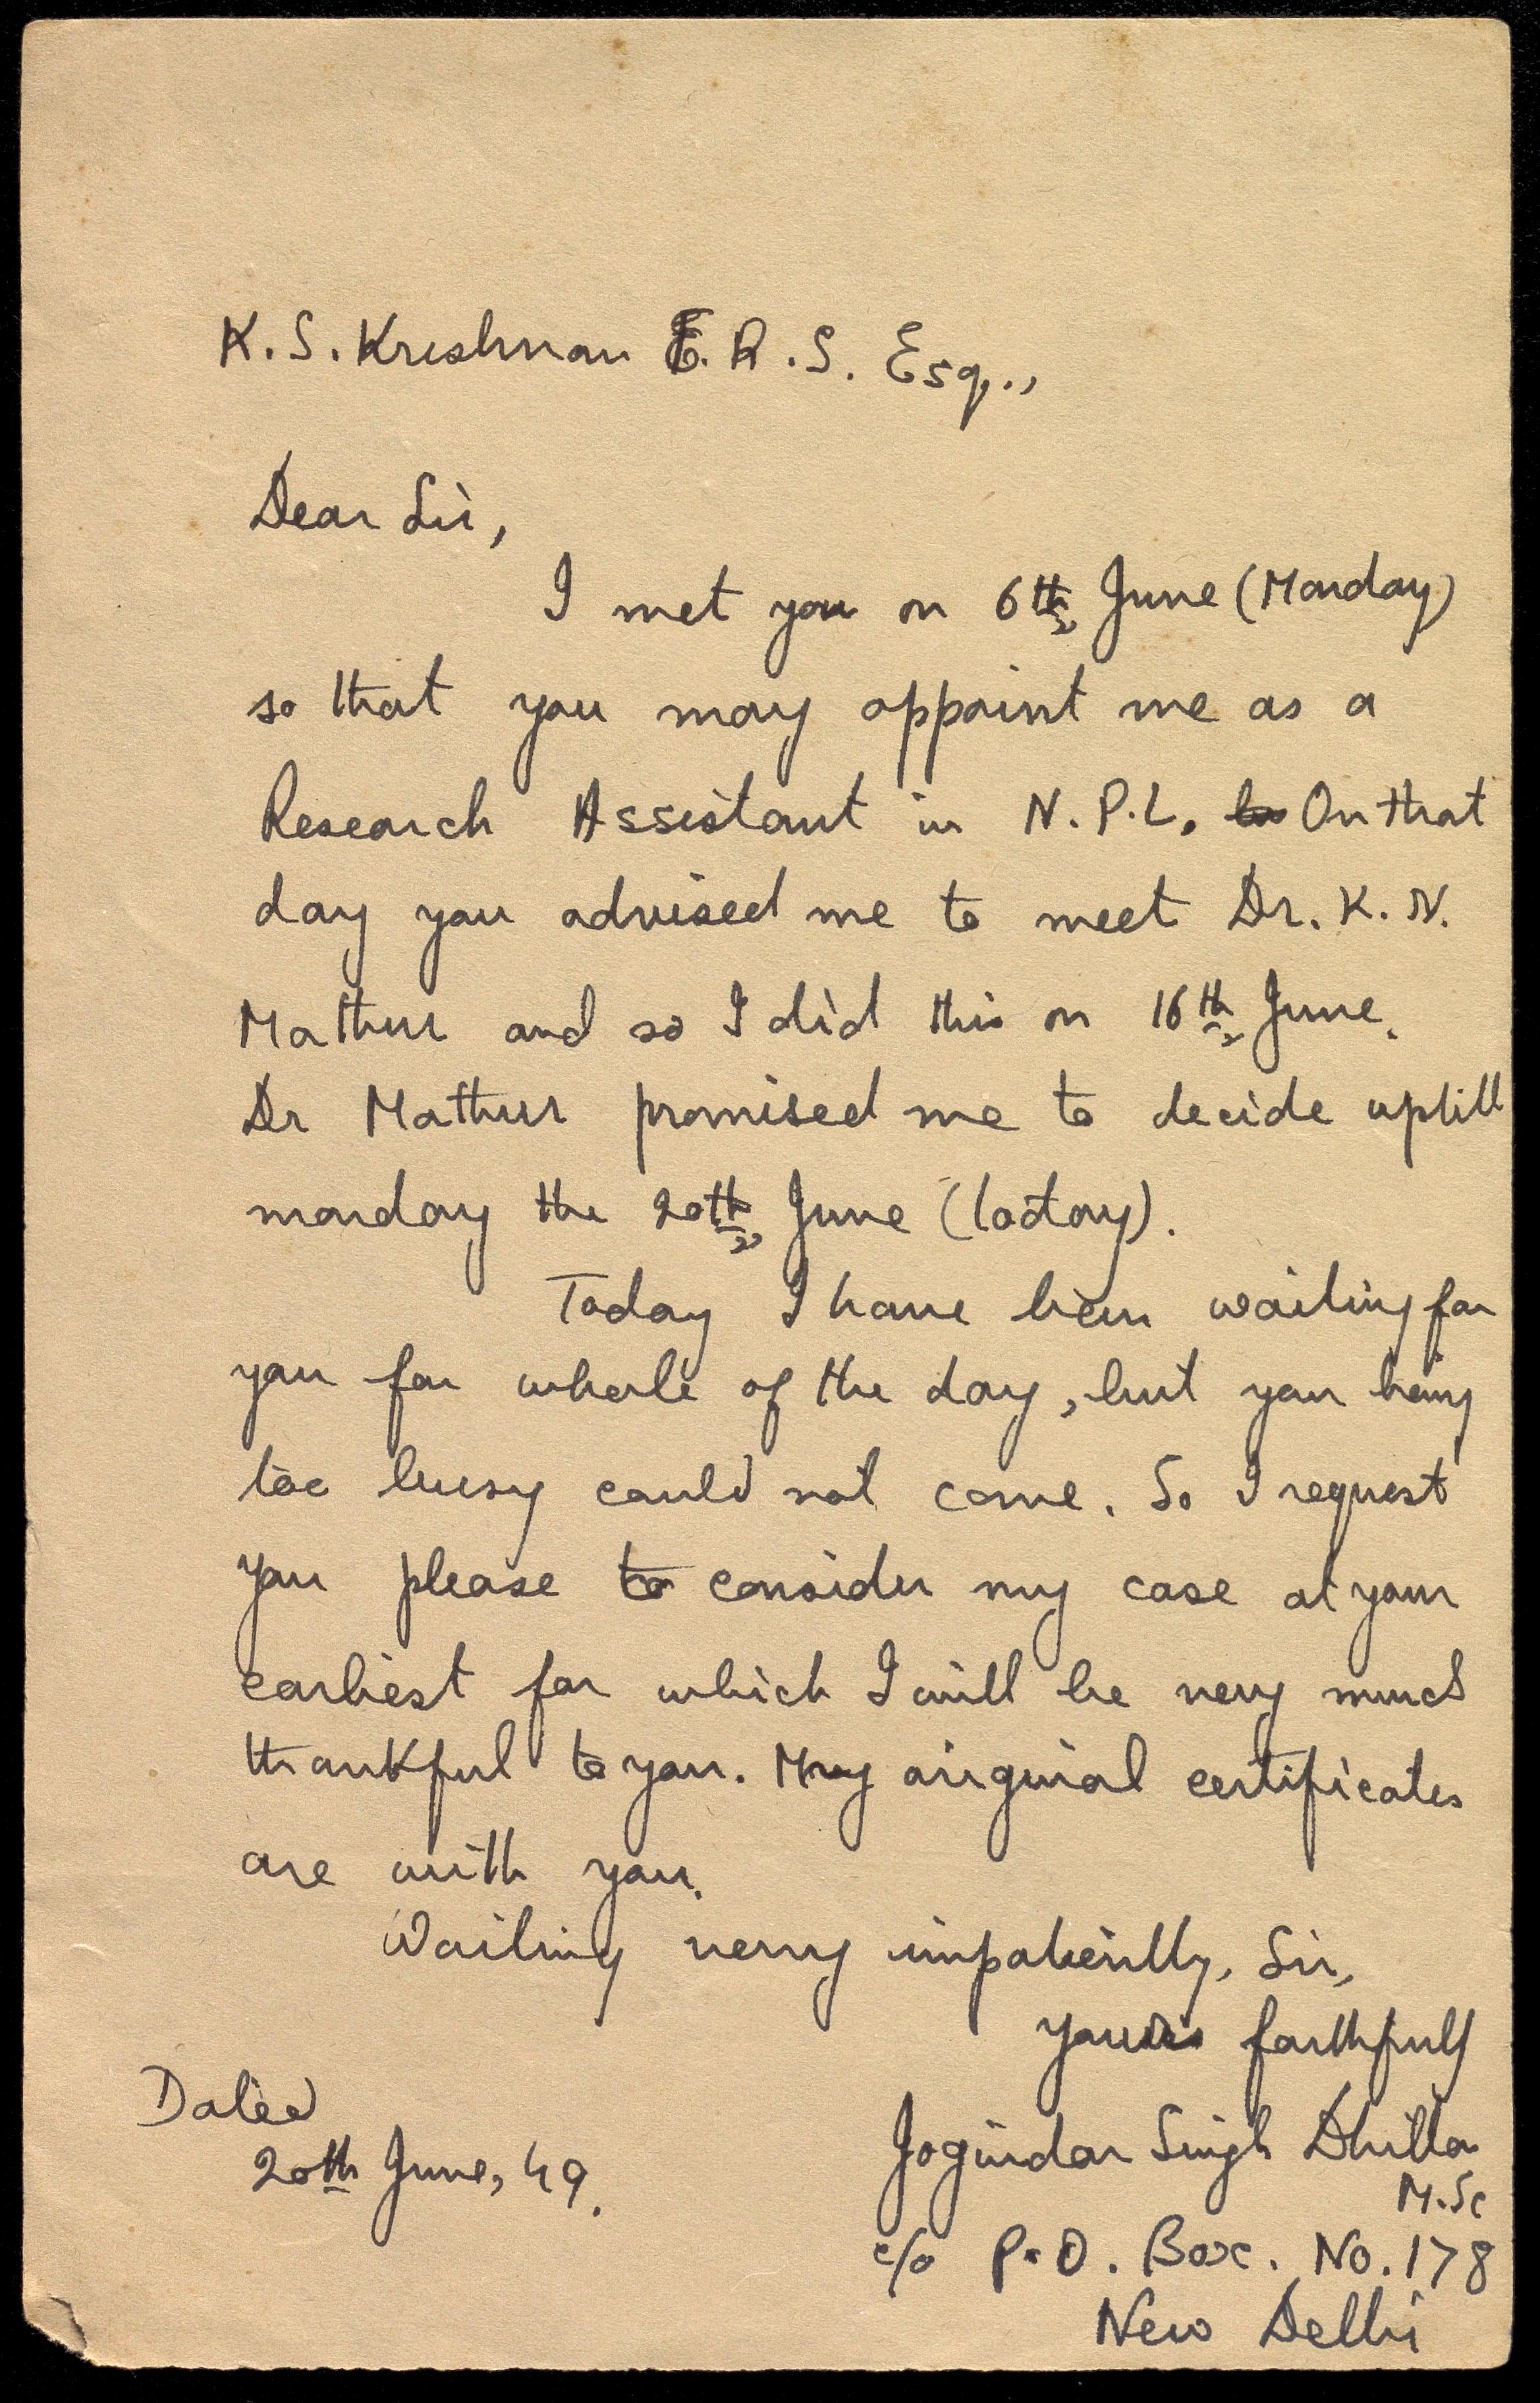 K. S. Krishnan F. R. S. Esq.,
Dear Sir,
I met you on 6th June (Monday)
so that you may appoint me as a
Research Assistant in N. P. L. On that
day you advised me to meet Dr. K. N.
Mathur and so I did this on 16th June.
Dr Mathur promised me to decide uptill
monday the 20th June (today).
Today I have been waiting for
you for whole of the day, but you being
too busy could not come. So I request
you please to consider my case at your
earliest for which I will be very much
thankful to you. My original certificates
are with you.
Waiting very impatiently, Sir,
yours faithfully
Dated
20th June, 49.
Jogindar Singh Dhillon
M.Sc
c/o P. O. Box. No. 178
New Delhi